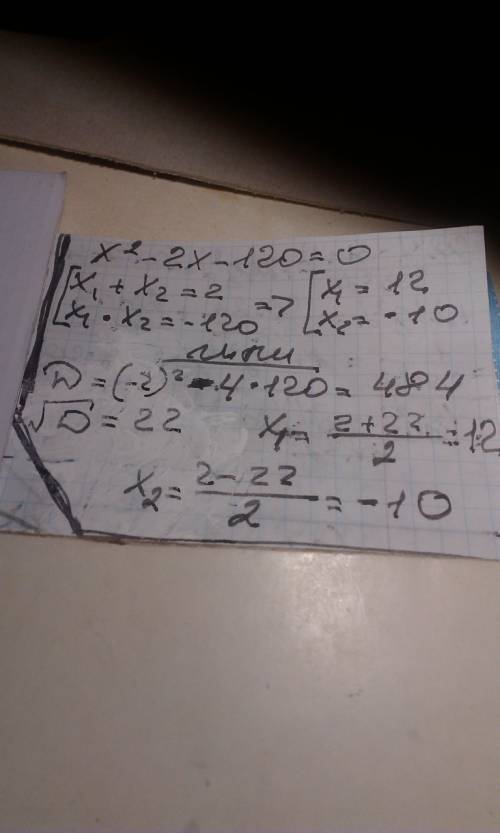 x² - 2x - 120 = 0
[x₁ + x₂ = 2
x₁ · x₂ = -120 => [x₁ = 12
x₂ = -10
или
D = (-2)² - 4 · 120 = 484
√D = 22 x₁ = (2+22)/2 = 12
x₂ = (2-22)/2 = -10